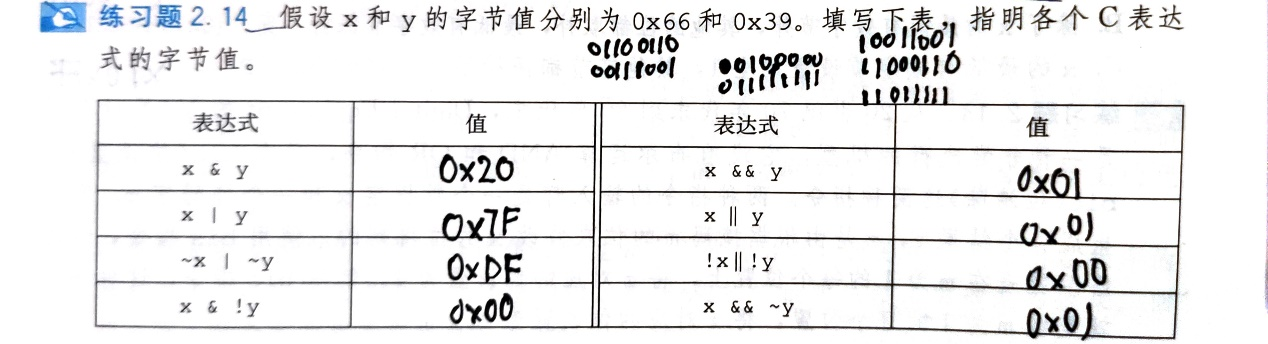 练习题 2.14 假设 x 和 y 的字节值分别为 0x66 和 0x39。填写下表，指明各个 C 表达
式的字节值。
01100110
00111001
00100000
011111111
10011001
11000110
11011111
表达式 值 表达式 值
x & y 0x20 x && y 0x01
x | y 0x7F x || y 0x01
~x | ~y 0xDF !x || !y 0x00
x & !y 0x00 x && ~y 0x01